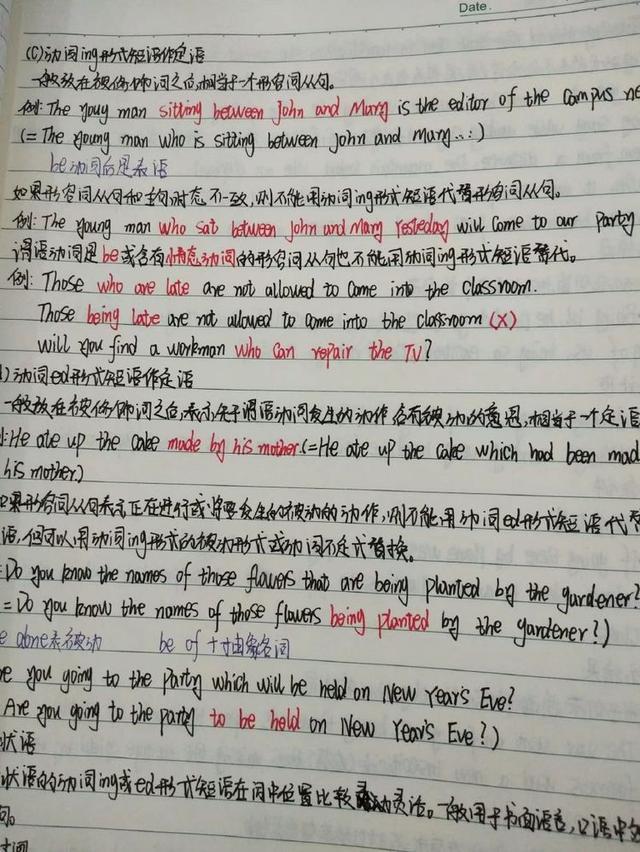 Date.
(C)动词ing形式短语作定语
一般放在被修饰词之后,相当于一个形容词从句。
例: The young man sitting between John and Mary is the editor of the campus ne
(= The young man who is sitting between John and Mary...)
be动词后是表语
如果形容词从句和主句时态不一致,则不能用动词ing形式短语代替形容词从句。
例: The young man who sat between John and Mary Yesterday will come to our party
谓语动词是be或含有情态动词的形容词从句也不能用动词ing形式短语替代。
例: Those who are late are not allowed to come into the classroom.
Those being late are not allowed to come into the classroom (X)
will you find a workman who can repair the TV?
)动词ed形式短语作定语
一般放在被修饰词之后,表示先于谓语动词发生的动作,含有被动的意思,相当于一个定语
: He ate up the cake made by his mother.(=He ate up the cake which had been mad
his mother)
如果形容词从句表示正在进行或将要发生的被动的动作,则不能用动词ed形式短语代替
语,但可以用动词ing形式的被动形式或动词不定式替换。
: Do you know the names of those flowers that are being planted by the gardener?
= Do you know the names of those flowers being planted by the gardener?)
e done表被动 be of +抽象名词
re you going to the party which will be held on New Year's Eve?
Are you going to the party to be held on New Year's Eve?)
状语
状语的动词ing或ed形式短语在词中位置比较灵活。一般用于书面语言,口语中
词。